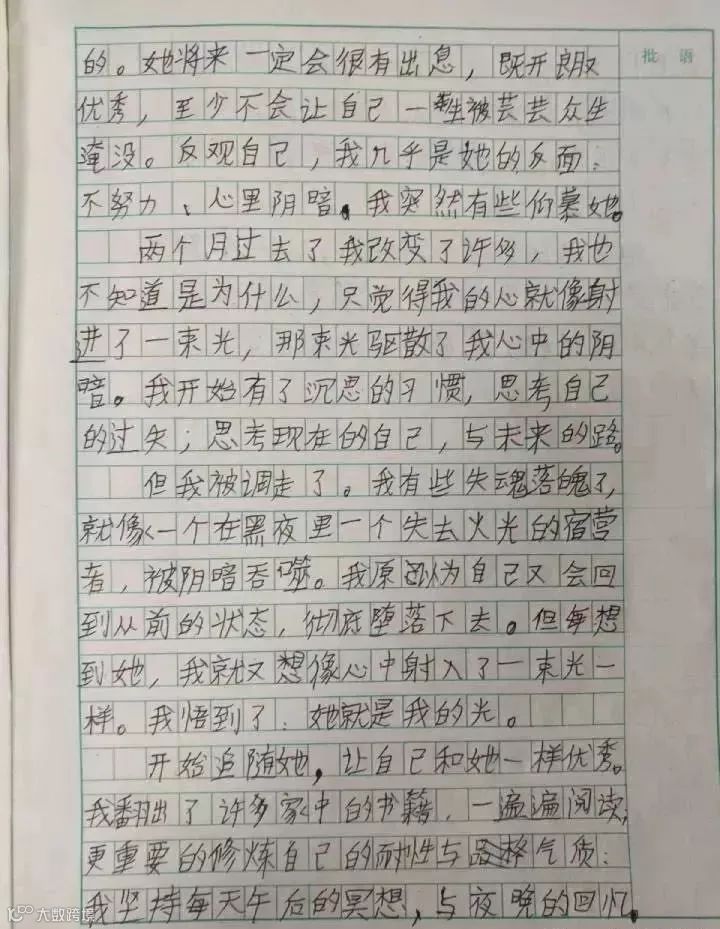 批 语
的。她将来一定会很有出息，既开朗又
优秀，至少不会让自己一生被芸芸众生
淹没。反观自己，我几乎是她的反面：
不努力、心里阴暗。我突然有些仰慕她。
两个月过去了我改变了许多，我也
不知道是为什么，只觉得我的心就像射
进了一束光，那束光驱散了我心中的阴
暗。我开始有了沉思的习惯，思考自己
的过失；思考现在的自己，与未来的路。
但我被调走了。我有些失魂落魄了，
就像一个在黑夜里一个失去火光的宿营
者，被阴暗吞噬。我原以为自己又会回
到从前的状态，彻底堕落下去。但每想
到她，我就又想像心中射入了一束光一
样。我悟到了：她就是我的光。
开始追随她，让自己和她一样优秀。
我翻出了许多家中的书籍，一遍遍阅读；
更重要的修炼自己的耐性与品格气质：
我坚持每天午后的冥想，与夜晚的回忆。
大数跨境